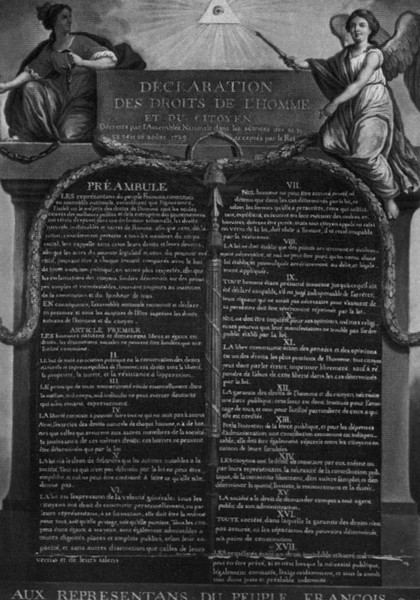 DÉCLARATION
DES DROITS DE L'HOMME
ET DU CITOYEN
Décrétés par l'Assemblée Nationale dans les séances des
août 1789 acceptés par le Roi
PRÉAMBULE
LES représentans du peuple François, constitués
en assemblée nationale, considérant que l'ignorance,
l'oubli ou le mépris des droits de l'homme sont les seules
causes des malheurs publics et de la corruption des gouvernemens
ont résolu d'exposer dans une déclaration solemnelle, les droits
naturels, inaliénables et sacrés de l'homme, afin que cette
constamment présente à tous les membres du corps
social, leur rappelle sans cesse leurs droits et leurs devoirs,
afin que les actes du pouvoir législatif et ceux du pouvoir exé-
cutif, pouvant être à chaque instant comparés avec le but
de toute institution politique, en soient plus respectés, afin que
les réclamations des citoyens, fondées désormais sur des princi-
pes simples et incontestables, tournent toujours au maintien
de la constitution et du bonheur de tous.
EN conséquence, l'assemblée nationale reconnoit et déclare,
en présence et sous les auspices de l'Être suprême les droits
suivans de l'homme et du citoyen.
ARTICLE PREMIER
LES hommes naissent et demeurent libres et égaux en
droits, les distinctions sociales ne peuvent être fondées que sur
l'utilité commune.
II
LE but de toute association politique est la conservation des droits
naturels et imprescriptibles de l'homme; ces droits sont la liberté,
la propriété, la sureté, et la résistance à l'oppression.
III
LE principe de toute souveraineté réside essentiellement dans
la nation, nul corps, nul individu ne peut exercer d'autorité
qui n'en émane expressément.
IV
LA liberté consiste à pouvoir faire tout ce qui ne nuit pas à autrui
Ainsi, l'exercice des droits naturels de chaque homme, n'a de bor-
nes que celles qui assurent aux autres membres de la société
la jouissance de ces mêmes droits; ces bornes ne peuvent
être déterminées que par la loi
V
LA loi n'a le droit de défendre que les actions nuisibles à la
société. Tout ce qui n'est pas défendu par la loi ne peut être
empêché, et nul ne peut être contraint à faire ce qu'elle n'or-
donne pas.
VI
LA loi est l'expression de la volonté générale; tous les
citoyens ont droit de concourir personnellement, ou par
leurs représentans, à sa formation; elle doit être la même
pour tous, soit qu'elle protège, soit qu'elle punisse. Tous les ci-
toyens étant égaux à ses yeux, sont également admissibles à
toutes dignités, places et emplois publics, selon leur ca-
pacité, et sans autres distinctions que celles de leurs
vertus et de leurs talens
VII
NUL homme ne peut être accusé, arrêté, ni
détenu que dans les cas déterminés par la loi, et
selon les formes qu'elle a prescrites, ceux qui sollici-
tent, expédient, exécutent ou font exécuter des ordres ar-
bitraires, doivent être punis; mais tout citoyen appelé ou saisi
en vertu de la loi, doit obéir à l'instant, il se rend coupable
par la résistance.
VIII
LA loi ne doit établir que des peines strictement et évidem-
ment nécessaires, et nul ne peut être puni qu'en vertu d'une
loi établie et promulguée antérieurement au délit, et légale-
ment appliquée.
IX
TOUT homme étant présumé innocent jusqu'à ce qu'il ait
été déclaré coupable, s'il est jugé indispensable de l'arrêter,
toute rigueur qui ne seroit pas nécessaire pour s'assurer de
sa personne doit être sévèrement réprimée par la loi.
X
NUL ne doit être inquiété pour ses opinions, même religi-
euses pourvu que leur manifestation ne trouble pas l'ordre
public établi par la loi.
XI
LA libre communication des pensées et des opinions
est un des droits les plus précieux de l'homme; tout citoyen
peut donc parler, écrire, imprimer librement, sauf à ré-
pondre de l'abus de cette liberté dans les cas déterminés
par la loi.
XII
LA garantie des droits de l'homme et du citoyen nécessite
une force publique; cette force est donc instituée pour l'avan-
tage de tous, et non pour l'utilité particulière de ceux à qui
elle est confiée.
XIII
POUR l'entretien de la force publique, et pour les dépenses
d'administration, une contribution commune est indispen-
sable; elle doit être également répartie entre les citoyens en
raison de leurs facultés.
XIV
LES citoyens ont le droit de constater par eux-mêmes ou
par leurs représentans, la nécessité de la contribution publi-
que, de la consentir librement, d'en suivre l'emploi, et d'en
déterminer la quotité, l'assiette, le recouvrement et la durée.
XV
LA société a le droit de demander compte à tout agent
public de son administration.
XVI
TOUTE société dans laquelle la garantie des droits n'est
pas assurée, ni la séparation des pouvoirs déterminée,
n'a point de constitution
XVII
LES propriétés étant un droit inviolable et sacré, nul
peut en être privé, si ce n'est lorsque la nécessité publique,
légalement constatée, l'exige évidemment, et sous la condi-
tion d'une juste et préalable indemnité
AUX REPRESENTANS DU PEUPLE FRANÇOIS